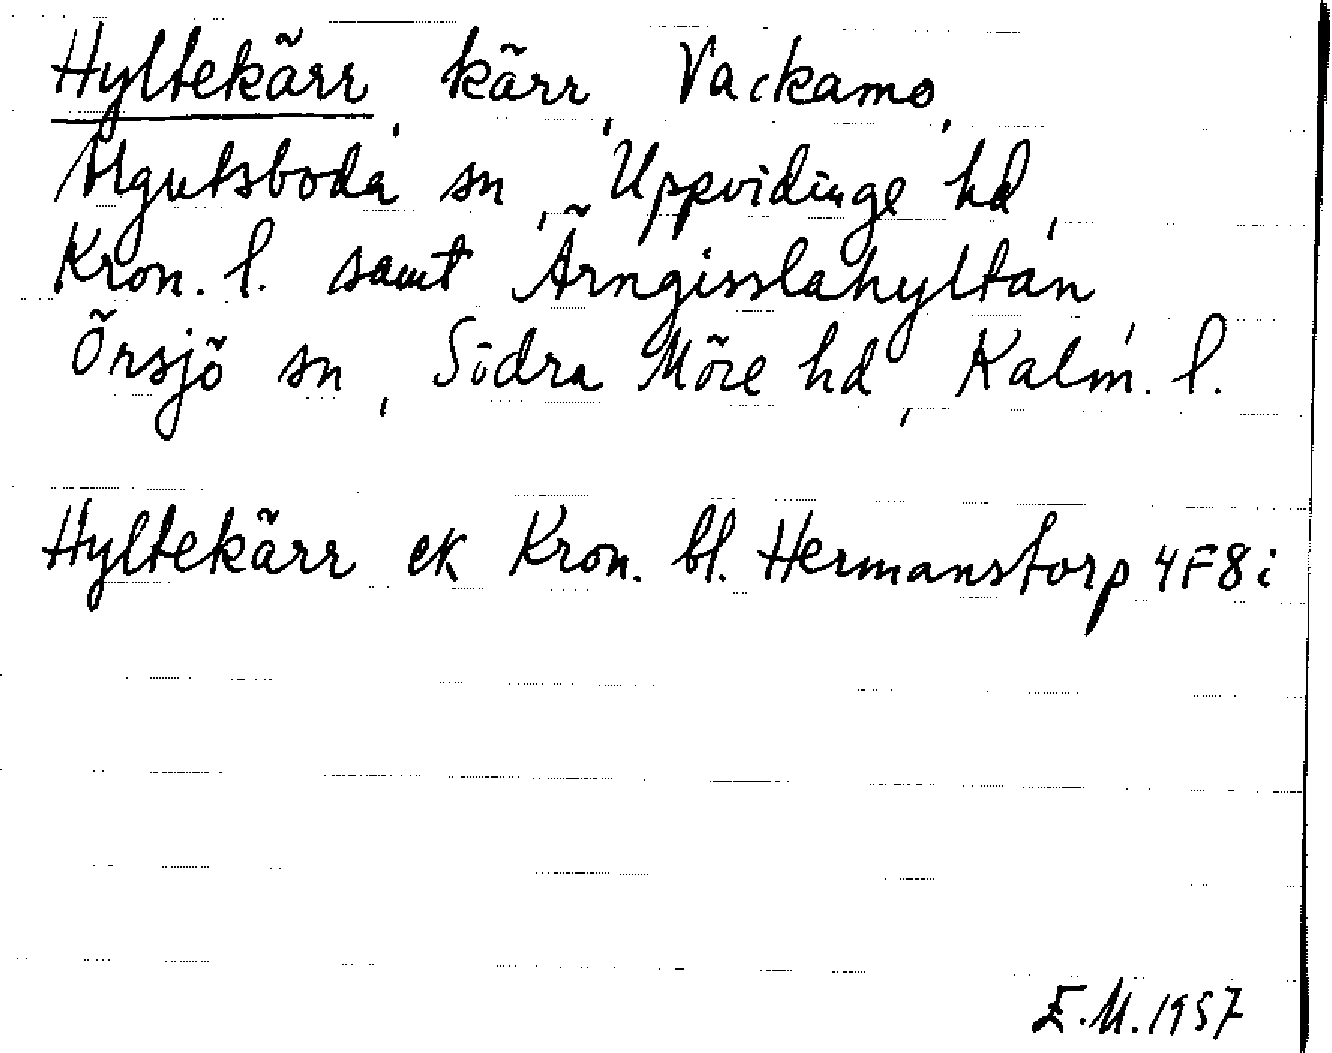 Hyltekärr, kärr, Vackamo,
Algutsboda sn, Uppvidinge hd,
Kron. l. samt Ärngisslahyltan,
Örsjö sn, Södra Möre hd, Kalm. l.
Hyltekärr ek Kron. bl. Hermanstorp 4F8i
E.M. 1957